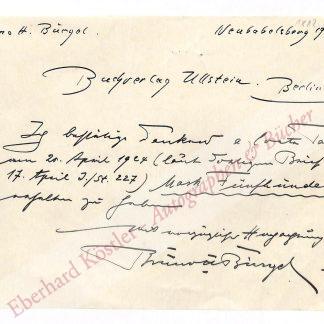 no H. Bürgel. Neubabelsberg 19
Buchverlag Ullstein. Berlin
Ich bestätige dankend
am 20. April 1924 (laut
17. April J./St. 227) Mark Fünfhunde
erhalten zu haben.
Bruno H. Bürgel
Eberhard Köstler Autographen & Bücher